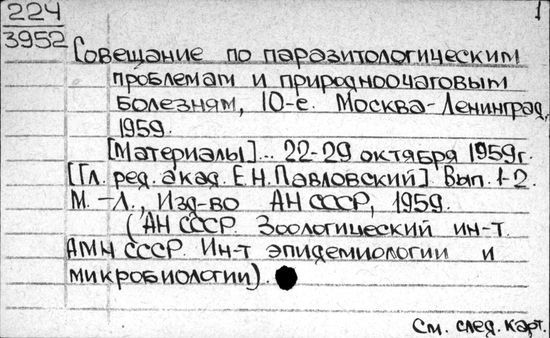 224 1
3952
Совещание по паразитологическим
проблемам и природноочаговым
болезням, 10-е. Москва-Ленинград,
1959.
[Материалы]... 22-29 октября 1959г.
[Гл. ред. акад. Е.Н.Павловский] Вып. 1-2.
М.-Л., Изд-во АН СССР, 1959.
(АН СССР. Зоологический ин-т.
АМН СССР. Ин-т эпидемиологии и
микробиологии).
См. след. карт.